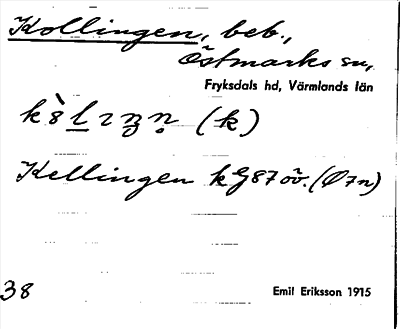 Kollingen, beb.,
Östmarks sn,
Fryksdals hd, Värmlands län
(k)
Kellingen kG87öv. (Ø7n)
38
Emil Eriksson 1915